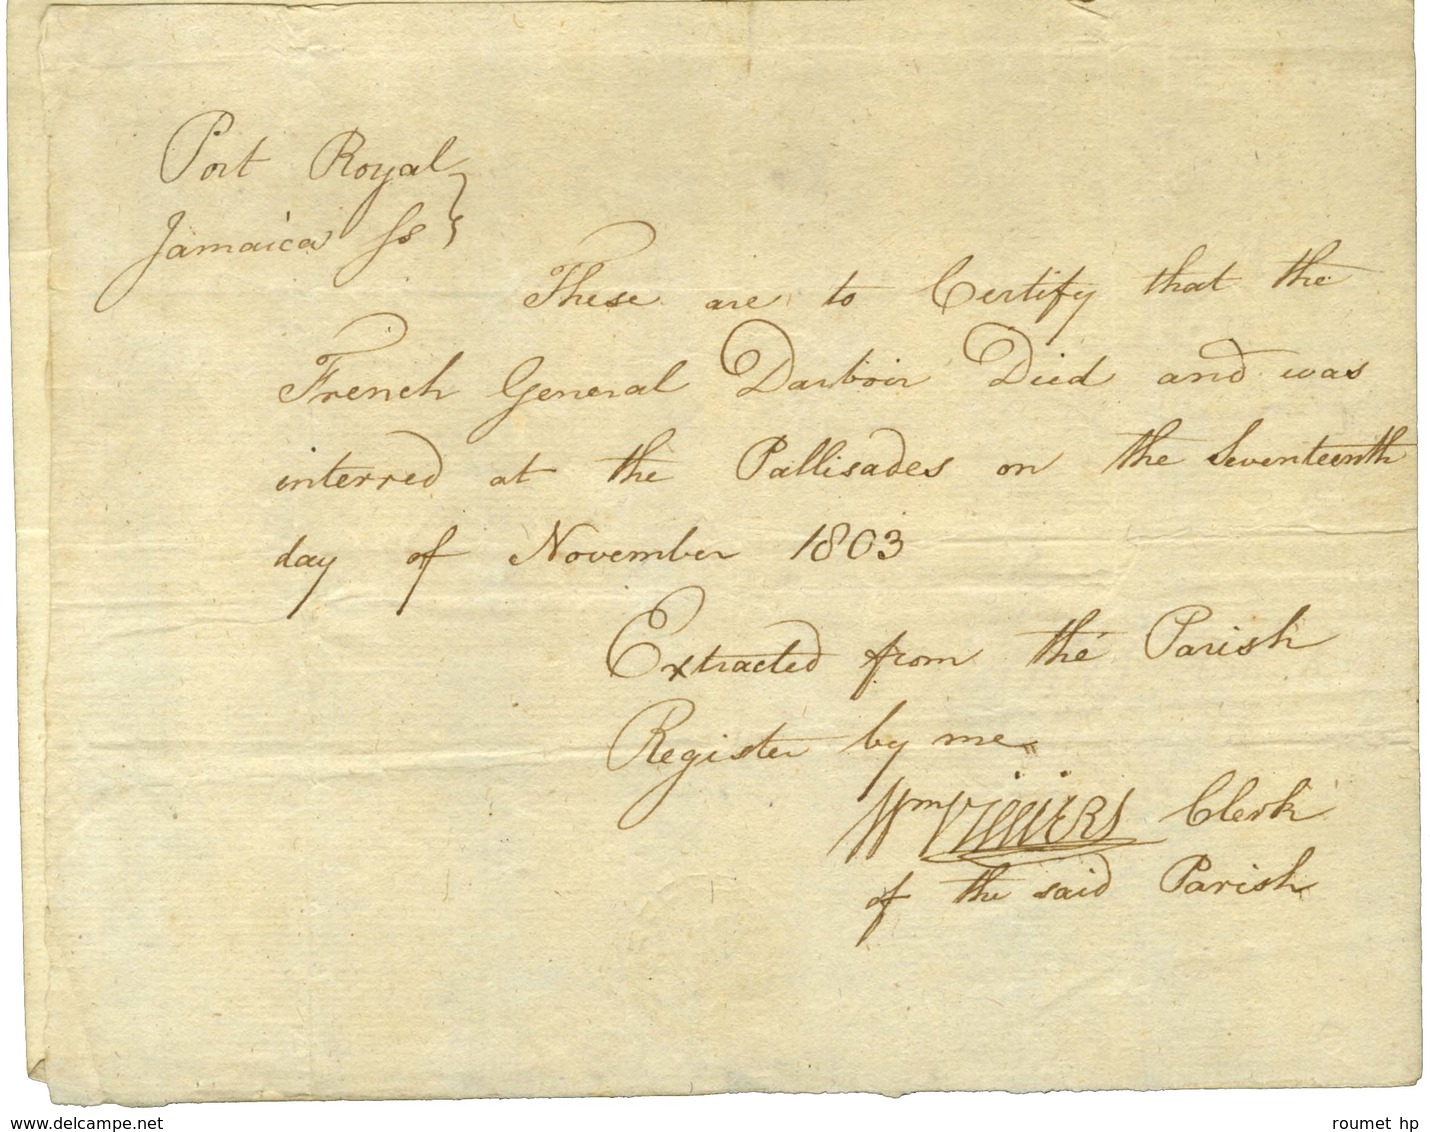 Port Royal }
Jamaica Ss }
These are to Certify that the
French General Darboir Died and was
interred at the Pallisades on the Seventeenth
day of November 1803
Extracted from the Parish
Register by me
Wm Clerk
of the said Parish
www.delcampe.net
roumet hp